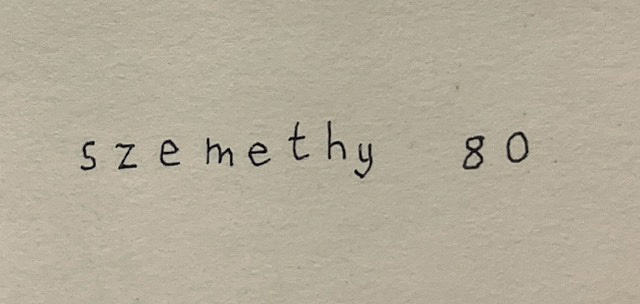 szemethy 80